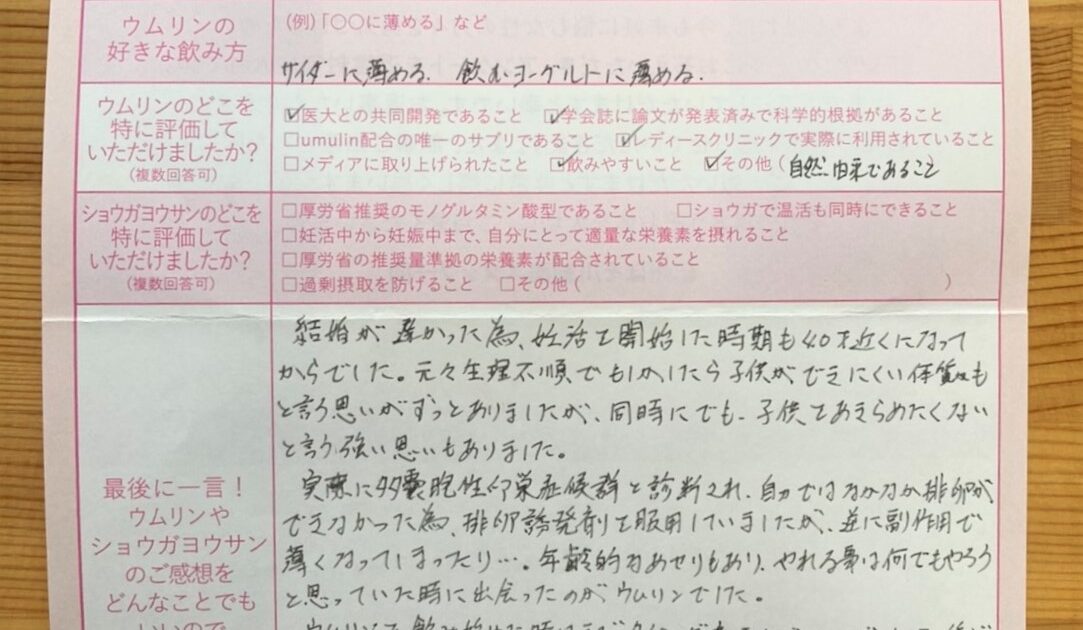 ウムリンの
好きな飲み方
(例)「○○に薄める」など
サイダーに薄める. 飲むヨーグルトに薄める.
ウムリンのどこを
特に評価して
いただけましたか?
(複数回答可)
☑医大との共同開発であること ☑学会誌に論文が発表済みで科学的根拠があること
□umulin配合の唯一のサプリであること ☑レディースクリニックで実際に利用されていること
□メディアに取り上げられたこと ☑飲みやすいこと ☑その他(自然由来であること
ショウガヨウサンのどこを
特に評価して
いただけましたか?
(複数回答可)
□厚労省推奨のモノグルタミン酸型であること □ショウガで温活も同時にできること
□妊活中から妊娠中まで、自分にとって適量な栄養素を摂れること
□厚労省の推奨量準拠の栄養素が配合されていること
□過剰摂取を防げること □その他( )
最後に一言!
ウムリンや
ショウガヨウサン
のご感想を
どんなことでも
いいので
結婚が遅かった為、妊活を開始した時期も40才近くになって
からでした。元々生理不順でもしかしたら子供ができにくい体質かも
と言う思いがずっとありましたが、同時にでも、子供をあきらめたくない
と言う強い思いもありました。
実際に多嚢胞性卵巣症候群と診断され、自力ではなかなか排卵が
できなかった為、排卵誘発剤を服用していましたが、逆に副作用で
薄くなってしまったり…。年齢的なあせりもあり、やれる事は何でもやろう
と思っていた時に出会ったのがウムリンでした。